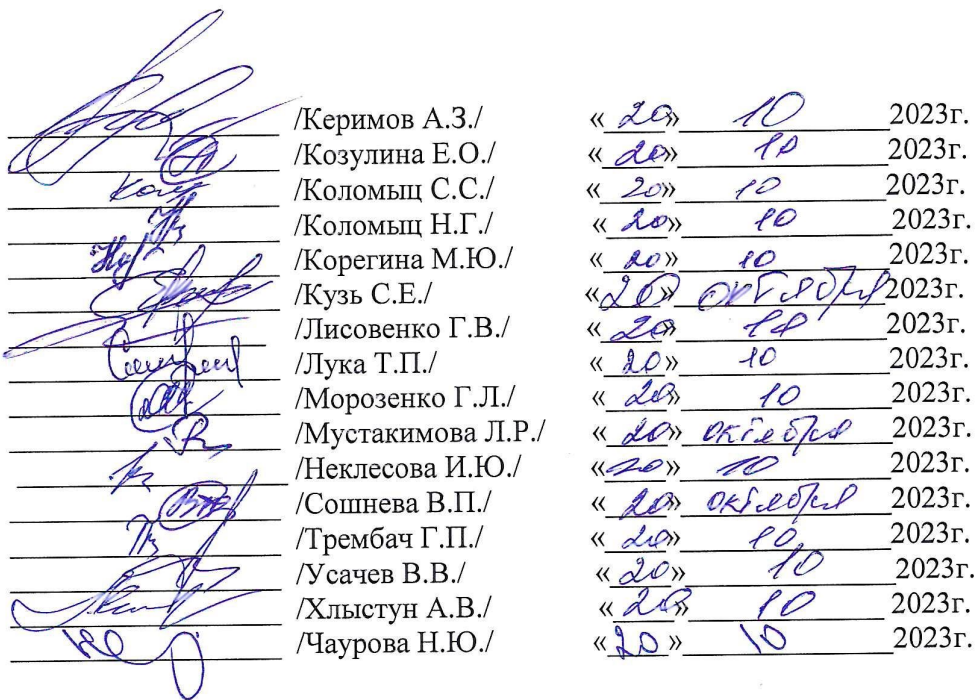 /Керимов А.З./ «20» 10 2023г.
/Козулина Е.О./ «20» 10 2023г.
/Коломыц С.С./ «20» 10 2023г.
/Коломыц Н.Г./ «20» 10 2023г.
/Корегина М.Ю./ «20» 10 2023г.
/Кузь С.Е./ «20» октября 2023г.
/Лисовенко Г.В./ «20» 10 2023г.
/Лука Т.П./ «20» 10 2023г.
/Морозенко Г.Л./ «20» 10 2023г.
/Мустакимова Л.Р./ «20» октября 2023г.
/Неклесова И.Ю./ «20» 10 2023г.
/Сошнева В.П./ «20» октября 2023г.
/Трембач Г.П./ «20» 10 2023г.
/Усачев В.В./ «20» 10 2023г.
/Хлыстун А.В./ «20» 10 2023г.
/Чаурова Н.Ю./ «20» 10 2023г.